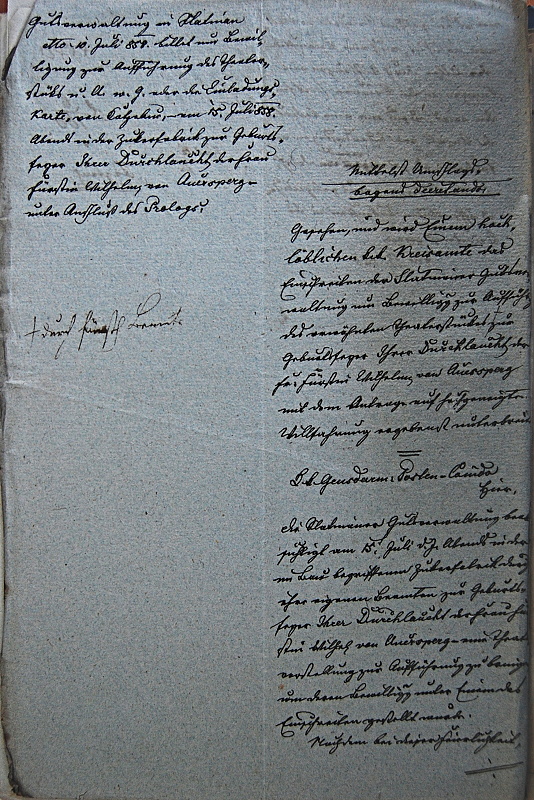 Gutsverwaltung in Slatinan
dtto 10. Juli 859. bittet um Bewil-
ligung zur Aufführung des Theater-
stüks u. A. w. g. oder die Einladungs-
Karte, von Kotzebue, am 15. Juli 858.
Abends in der Zukerfabrik zur Geburts-
feyer Ihrer Durchlaucht der Frau
Fürstin Wilhelm. von Auersperg
unter Anschluß des Prologs.
+ durch Beamte
Mittelst Umschlags-
bogens
Gesehen, und wird Einem hoch-
löblichen k.k. Kreisamte das
Einschreiten der Slatinaner Gutsver-
waltung um Bewilligg zur Aufführ
des Theaterstükes zur
Geburtsfeyer Ihrer Durchlaucht der
Fr. Fürstin Wilhelm. von Auersperg
mit dem Antrage auf hochgeneigte
Willfahrung ergebenst unterbreitet
K.k. Gensdarm: Posten-Comdo
Hier.
Die Slatinaner Gutsverwaltung beab-
sichtigt am 15. Juli d. J. Abends in der
im Bau begriffenen Zukerfabrik durch
ihre eigenen Beamten zur Geburts-
feyer Ihrer Durchlaucht der Frau Für-
stin Wilhel. von Auersperg eine Theater
vorstellung zur Aufführung zu bringen
um deren Bewilligg unter Einem das
Einschreiten gestellt wurde.
Nachdem bei dieser Feierlichkeit,